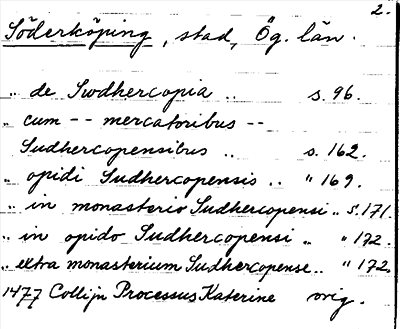 2.
Söderköping, stad, Ög. län.
„ de Swdhercopia „ s. 96.
„ cum -- mercatoribus --
Sudhercopensibus „ s. 162.
„ opidi Sudhercopensis „ " 169.
„ in monasterio Sudhercopensi „ s. 171.
„ in opido Sudhercopensi „ " 172.
„ extra monasterium Sudhercopense „ " 172.
1477 Collijn Processus Katerine orig.